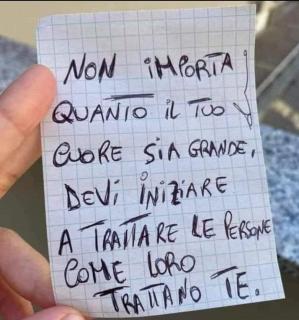 NON IMPORTA
QUANTO IL TUO
CUORE SIA GRANDE,
DEVI INIZIARE
A TRATTARE LE PERSONE
COME LORO
TRATTANO TE.